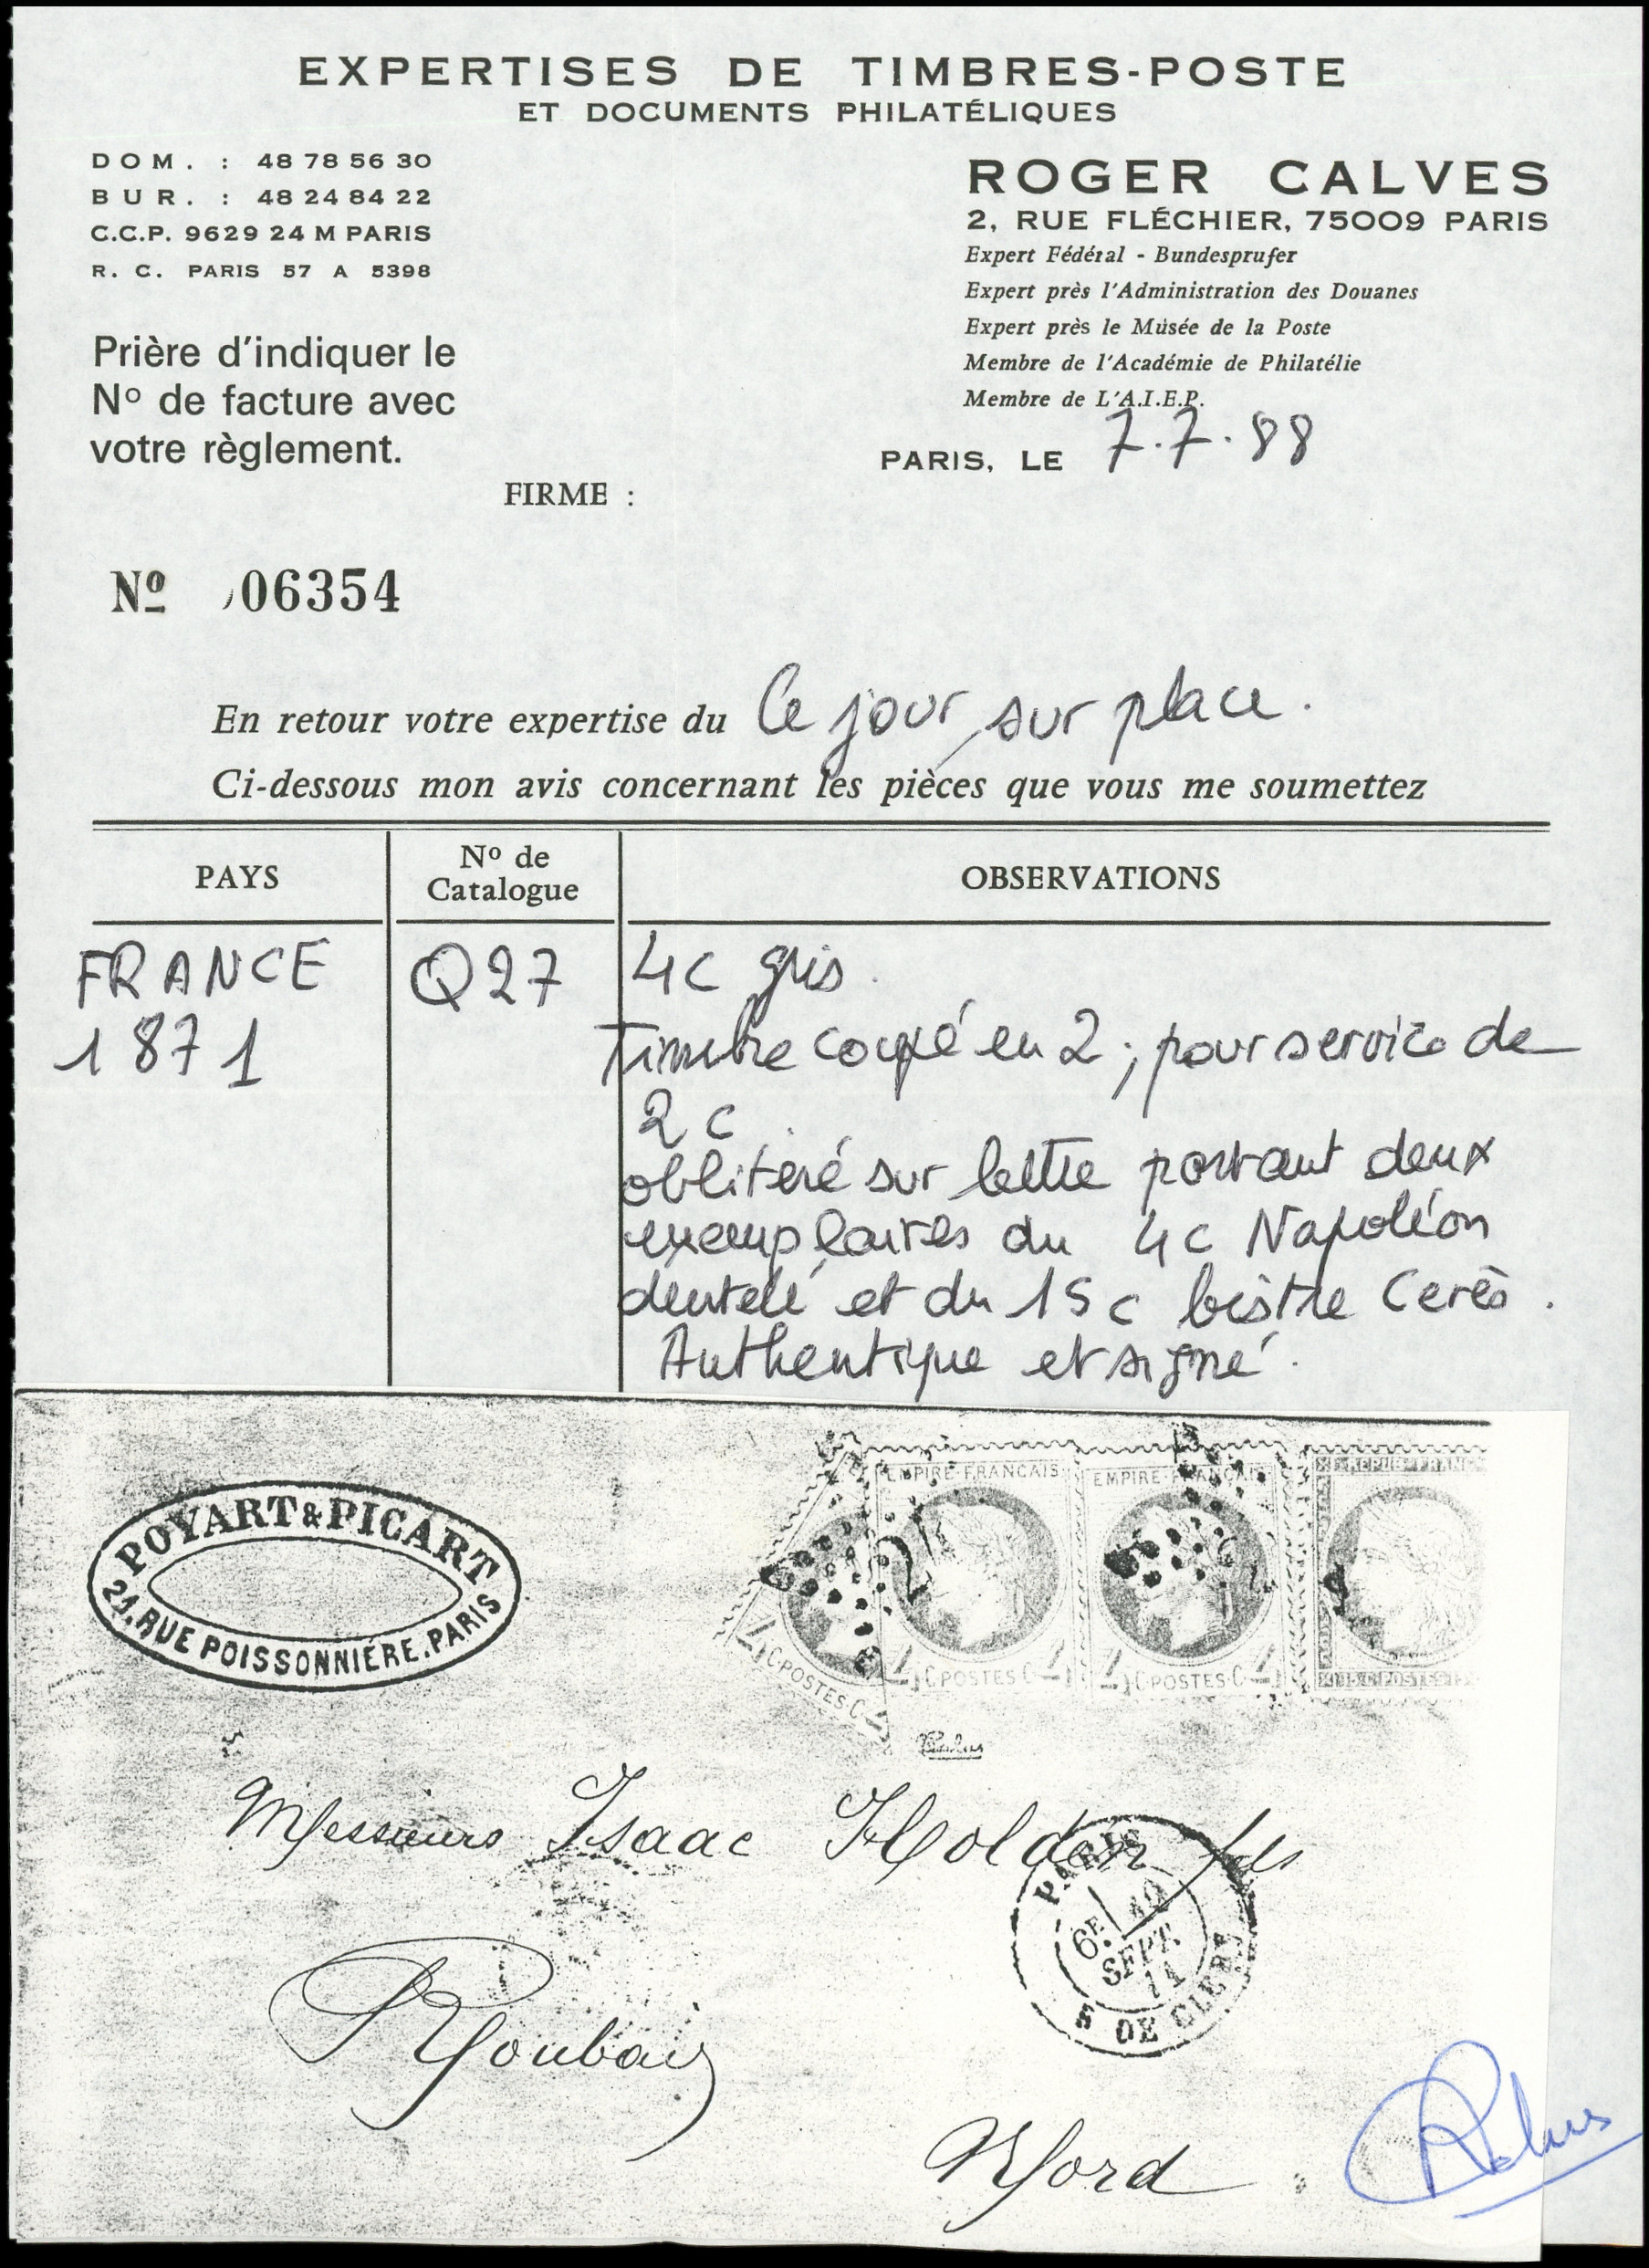 EXPERTISES DE TIMBRES-POSTE
ET DOCUMENTS PHILATÉLIQUES
DOM. : 48 78 56 30
BUR. : 48 24 84 22
C.C.P. 9629 24 M PARIS
R. C. PARIS 57 A 5398
ROGER CALVES
2, RUE FLÉCHIER, 75009 PARIS
Expert Fédéral - Bundesprufer
Expert près l'Administration des Douanes
Expert près le Musée de la Poste
Membre de l'Académie de Philatélie
Membre de L'A.I.E.P.
Prière d'indiquer le
Nº de facture avec
votre règlement.
PARIS, LE 7.7.88
FIRME :
Nº 06354
En retour votre expertise du Ce jour, sur place.
Ci-dessous mon avis concernant les pièces que vous me soumettez
PAYS
Nº de
Catalogue
OBSERVATIONS
FRANCE
1871
Q27
4c gris.
Timbre coupé en 2, pour service de
2c
oblitéré sur lettre portant deux
exemplaires du 4c Napoléon
dentelé et du 15c bistre Cerès.
Authentique et signé.
POYART & PICART
21, RUE POISSONNIÈRE. PARIS
4 C POSTES C 4
EMPIRE FRANCAIS
4 C POSTES C 4
EMPIRE FRANCAIS
4 C POSTES C 4
REPUB FRANC
Calves
Messieurs Isaac Holden fils
PARIS
6E
SEPT.
71
R. DE CLERY
Roubaix
Nord
Calves